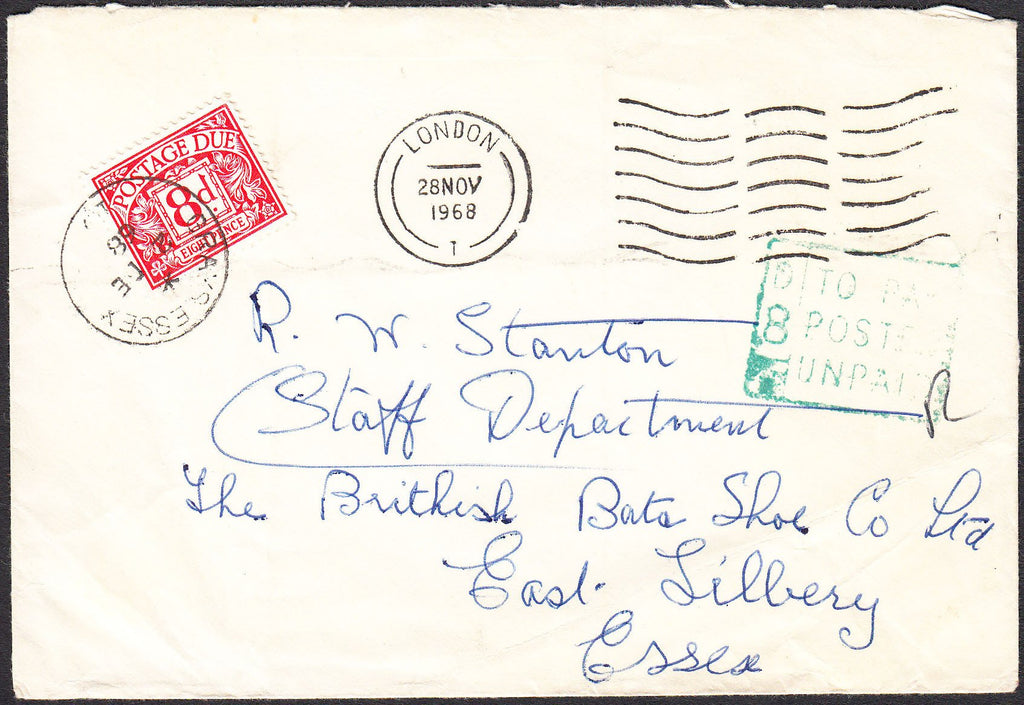 POSTAGE DUE
8d
EIGHT PENCE
LONDON
28 NOV
1968
T
ESSEX
D TO PA
8 POST
UNPAI
R. W. Stanton
Staff Department
The Brithish Bata Shoe Co Ltd
East Lilbery
Essex